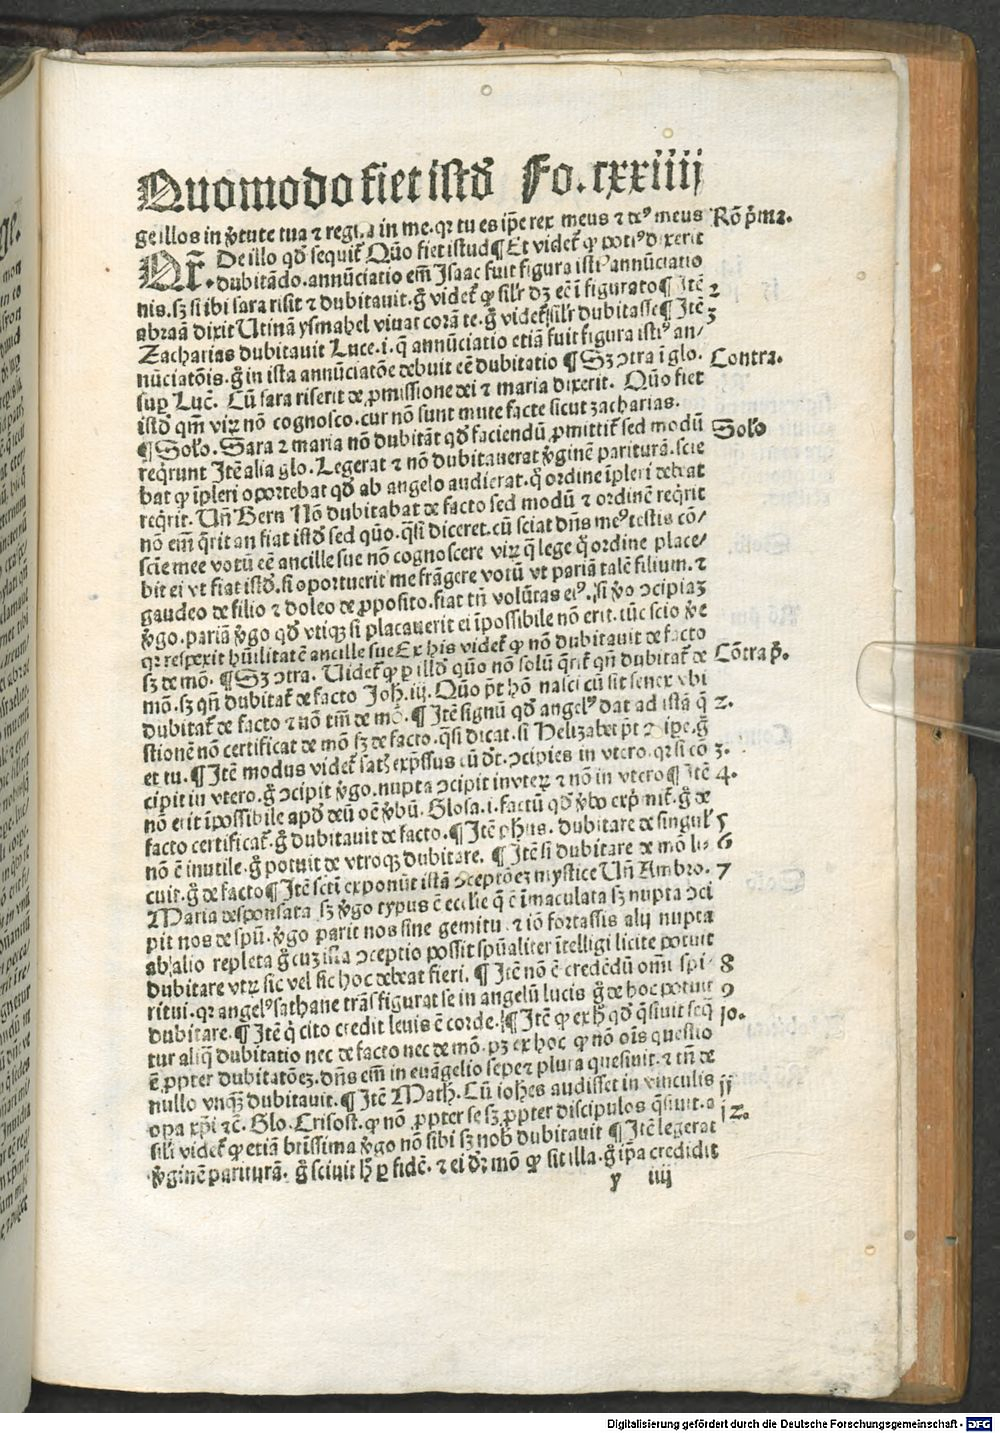 Quomodo fiet istđ Fo. cxxiiij
ge illos in ꝟtute tua ⁊ regi a in me. qꝛ tu es ip̄e rex meus ⁊ deꝰ meus Rō p̄ma.
De illo qđ sequit᷑ Quō fiet istud ¶ Et videt᷑ ꝙ potiꝰ dixerit
dubitādo. annūciatio em̄ Isaac fuit figura istiꝰ annūciatio
nis. sꝫ si ibi sara risit ⁊ dubitavit. g̊ videt᷑ ꝙ sil'r dꝫ eē ī figurato ¶ Itē 2
abraā dixit Utinā ysmahel viuat corā te. g̊ videt᷑ sil'r dubitasse ¶ Itē 3
Zacharias dubitavit Luce. i. q̄ annūciatio etiā fuit figura istiꝰ an/
nūciatōis. g̊ in ista annūciatōe debuit eē dubitatio ¶ Sꝫ ↄtra ī glo. Contra.
suꝑ Luc̄. Cū sara riserit de ꝓmissione dei ⁊ maria dixerit. Quō fiet
istđ qm̄ viꝝ nō cognosco. cur nō sunt mute facte sicut zacharias.
¶ Sol'o. Sara ⁊ maria nō dubitāt qđ faciendū ꝓmittit᷑ sed modū Sol'o
req̇runt Itē alia glo. Legerat ⁊ nō dubitauerat ꝟginē pariturā. scie
bat ꝙ īpleri oportebat qđ ab angelo audierat. q̊ ordine īpleri debeat
req̇rit. Un̄ Bern Nō dubitabat de facto sed modū ⁊ ordinē req̇rit
nō em̄ q̇rit an fiat istđ sed quō. q̄si diceret. cū sciat dn̄s meꝰ testis cō/
sciē mee votū eē ancille sue nō cognoscere viꝝ q̄ lege q̊ ordine place/
bit ei vt fiat istđ. si oportuerit me frāgere votū vt pariā talē filium. ⁊
gaudeo de filio ⁊ doleo de ꝓposito. fiat tn̄ volūtas eiꝰ. si ꝟo ↄcipiaꝫ
ꝟgo. pariā ꝟgo qđ vtiqꝫ si placauerit ei īpossibile nō erit. tūc scio ꝟe
qꝛ respexit hūilitatē ancille sue Ex his videt᷑ ꝙ nō dubitauit de facto
sꝫ de mō. ¶ Sꝫ ↄtra. Videt᷑ ꝙ ꝑ illđ quō nō solū q̇rit᷑ qn̄ dubitat᷑ de Cōtra p̄.
mō. sꝫ qn̄ dubitat᷑ de facto Joh. iij. Quō pōt hō nasci cū sit senex vbi
dubitat᷑ de facto ⁊ nō tm̄ de mō. ¶ Itē signū qđ angelꝰ dat ad istā q̄ 2.
stionē nō certificat de mō sꝫ de facto. q̄si dicat. si Helizabet pōt ↄcipe. g̊
et tu. ¶ Itē modus videt᷑ satꝭ exp̄ssus cū dt̄. ↄcipies in vtero. qꝛ si cō 3.
cipit in vtero. g̊ ↄcipit ꝟgo. nupta ↄcipit in vteꝝ ⁊ nō in vtero ¶ Itē 4.
nō erit īpossibile apđ deū oē ꝟbū. Glosa. i. factū qđ ꝟbo exp̄mit᷑. g̊ de
facto certificat᷑. g̊ dubitauit de facto. ¶ Itē phus. dubitare de singul' 5
nō ē inutile. g̊ potuit de vtroqꝫ dubitare. ¶ Itē si dubitare de mō li⸗ 6
cuit. g̊ de facto ¶ Itē scti exponūt istā ↄceptōeꝫ mystice Un̄ Ambro. 7
Maria desponsata sꝫ ꝟgo typus ē ecclie q̄ ē īmaculata sꝫ nupta ↄci
pit nos de spū. ꝟgo parit nos sine gemitu. ⁊ iō fortassis alij nupta
ab alio repleta g̊ cuꝫ ista ↄceptio possit spūaliter ītelligi licite potuit
dubitare vtꝝ sic vel sic hoc debeat fieri. ¶ Itē nō ē credēdū omi spi⸗ 8
ritui. qꝛ angelꝰ sathane trāsfigurat se in angelū lucis g̊ de hoc potuit 9
dubitare. ¶ Itē q̇ cito credit leuis ē corde. ¶ Itē ꝙ ex hͦ qđ q̄siuit seq̇ 10.
tur aliq̄ dubitatio nec de facto nec de mō. pꝫ ex hoc ꝙ nō oīs questio
ē ꝓpter dubitatōeꝫ. dn̄s em̄ in euāgelio sepe ⁊ plura quesiuit. ⁊ tn̄ de
nullo vnqꝫ dubitauit. ¶ Itē Math. Cū iohes audisset in vinculis 11
opa xp̄i ⁊c̄. Glo. Crisost. ꝙ nō ꝓpter se sꝫ ꝓpter discipulos q̄siuit. a 12.
sili videt᷑ ꝙ etiā btissima ꝟgo nō sibi sꝫ nob dubitauit ¶ Itē legerat
ꝟginē pariturā. g̊ sciuit hͦ ꝑ fidē. ⁊ ei dꝫ mō ꝙ sit illa. g̊ ip̄a credidit
y iiij
Digitalisierung gefördert durch die Deutsche Forschungsgemeinschaft - DFG